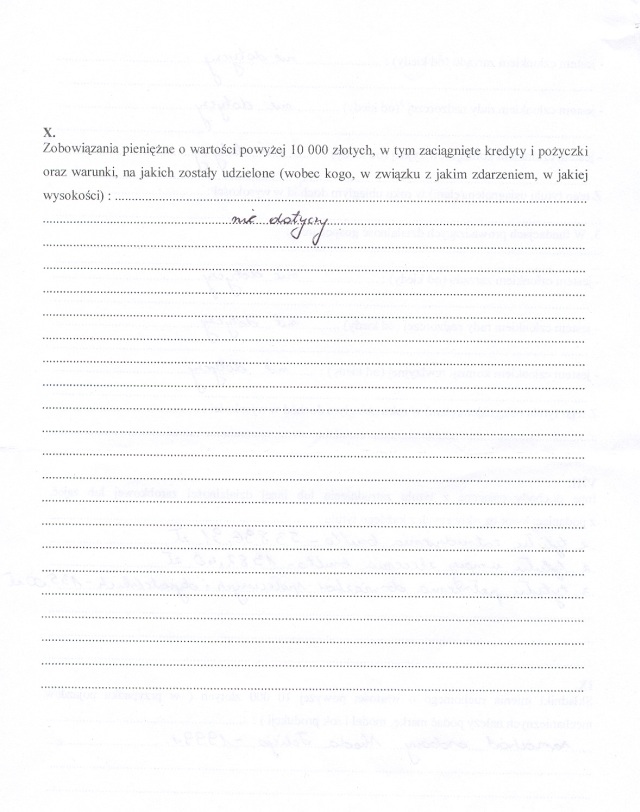 X.
Zobowiązania pieniężne o wartości powyżej 10 000 złotych, w tym zaciągnięte kredyty i pożyczki
oraz warunki, na jakich zostały udzielone (wobec kogo, w związku z jakim zdarzeniem, w jakiej
wysokości) :
nie dotyczy